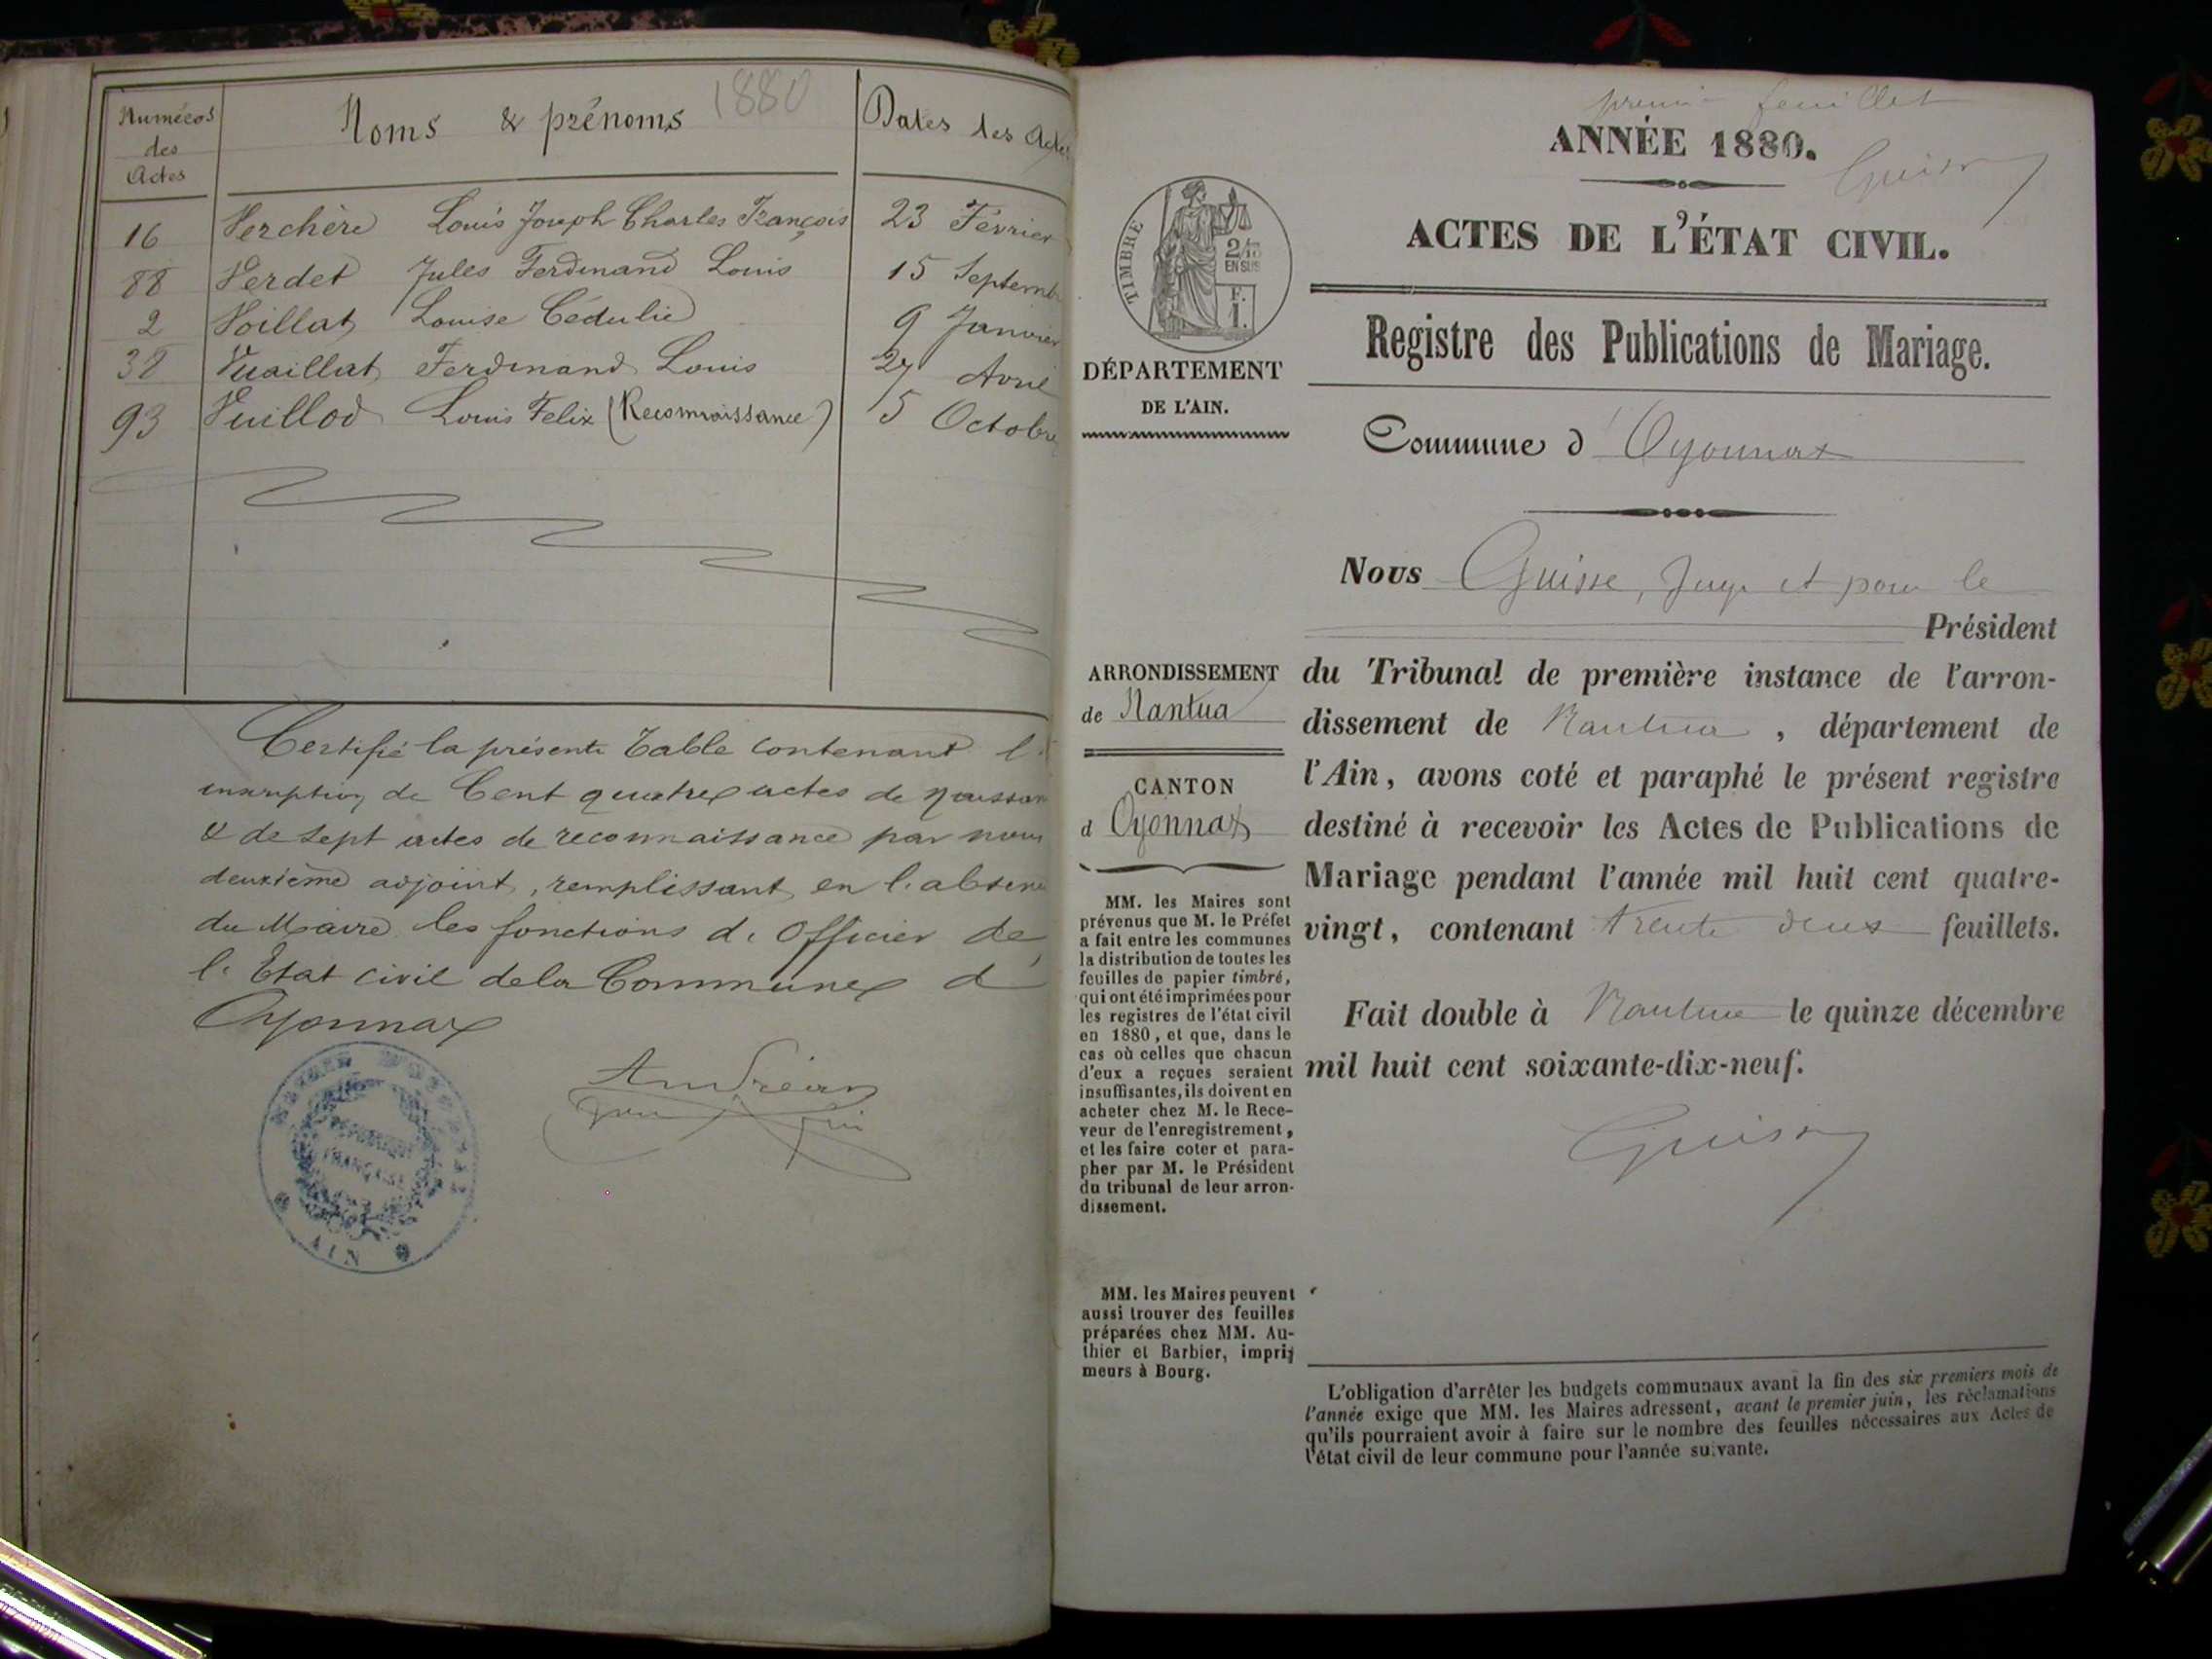 1880
Numéros
des
Actes
Noms & prénoms
Dates des Actes
16 Verchère Louis Joseph Charles François 23 Février
88 Verdet Jules Ferdinand Louis 15 Septemb
2 Voillat Louise Cédulie 9 Janvier
38 Vuaillat Ferdinand Louis 27 Avril
93 Vuillod Louis Felix (Reconnaissance) 5 Octobre
Certifié la présente Table contenant l'
inscription de Cent quatre actes de naissan
& de sept actes de reconnaissance par nous
deuxième adjoint, remplissant en l'absence
du Maire les fonctions d'Officier de
l'Etat civil de la Commune d'
Oyonnax
RÉPUBLIQUE
FRANÇAISE
AIN
premier feuillet
ANNÉE 1880.
ACTES DE L'ÉTAT CIVIL.
TIMBRE
2/10
EN SUS
F.
1.
Registre des Publications de Mariage.
DÉPARTEMENT
DE L'AIN.
Commune d'Oyonnax
Nous Guisse, Juge et pour le
Président
ARRONDISSEMENT
de Nantua
CANTON
d Oyonnax
du Tribunal de première instance de l'arron-
dissement de Nantua, département de
l'Ain, avons coté et paraphé le présent registre
destiné à recevoir les Actes de Publications de
Mariage pendant l'année mil huit cent quatre-
vingt, contenant trente deux feuillets.
Fait double à Nantua le quinze décembre
mil huit cent soixante-dix-neuf.
MM. les Maires sont
prévenus que M. le Préfet
a fait entre les communes
la distribution de toutes les
feuilles de papier timbré,
qui ont été imprimées pour
les registres de l'état civil
en 1880, et que, dans le
cas où celles que chacun
d'eux a reçues seraient
insuffisantes, ils doivent en
acheter chez M. le Rece-
veur de l'enregistrement,
et les faire coter et para-
pher par M. le Président
du tribunal de leur arron-
dissement.
MM. les Maires peuvent
aussi trouver des feuilles
préparées chez MM. Au-
thier et Barbier, impri-
meurs à Bourg.
L'obligation d'arrêter les budgets communaux avant la fin des six premiers mois de
l'année exige que MM. les Maires adressent, avant le premier juin, les réclamations
qu'ils pourraient avoir à faire sur le nombre des feuilles nécessaires aux Actes de
l'état civil de leur commune pour l'année suivante.